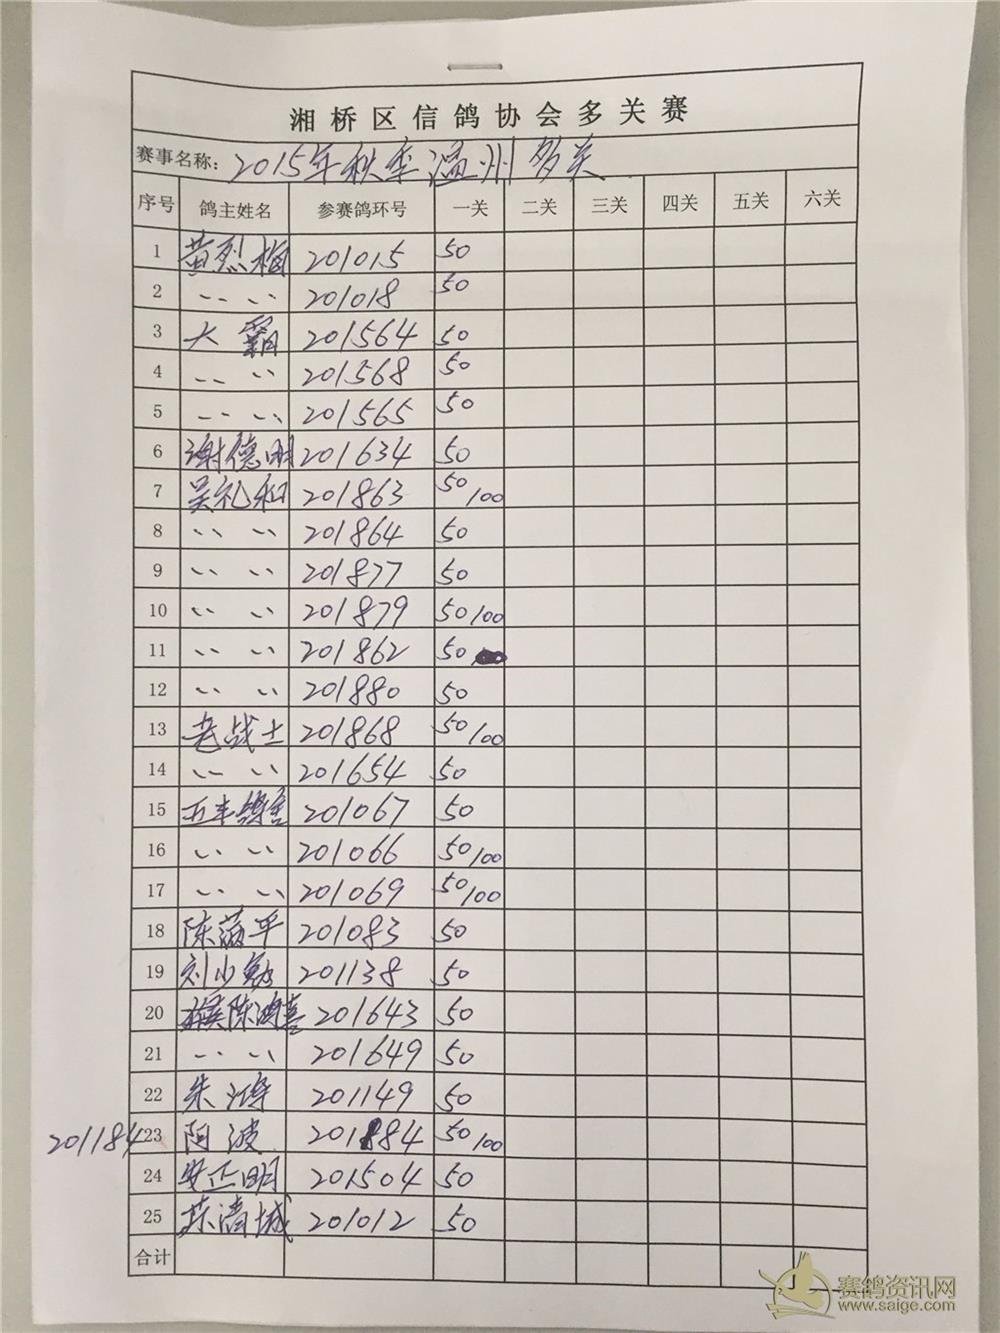 湘桥区信鸽协会多关赛
赛事名称: 2015年秋季温州多关
序号 鸽主姓名 参赛鸽环号 一关 二关 三关 四关 五关 六关
1 黄烈梅 201015 50
2 〃 〃 201018 50
3 大霸 201564 50
4 〃 〃 201568 50
5 〃 〃 201565 50
6 谢德明 201634 50
7 吴礼和 201863 50/100
8 〃 〃 201864 50
9 〃 〃 201877 50
10 〃 〃 201879 50/100
11 〃 〃 201862 50
12 〃 〃 201880 50
13 老战士 201868 50/100
14 〃 〃 201654 50
15 五丰鸽舍 201067 50
16 〃 〃 201066 50/100
17 〃 〃 201069 50/100
18 陈 平 201083 50
19 刘少勉 201138 50
20 陈鸿喜 201643 50
21 〃 〃 201649 50
22 朱鸿 201149 50
201184 23 阿波 201184 50/100
24 安正明 201504 50
25 陈清城 201012 50
合计
赛鸽资讯网
www.saige.com